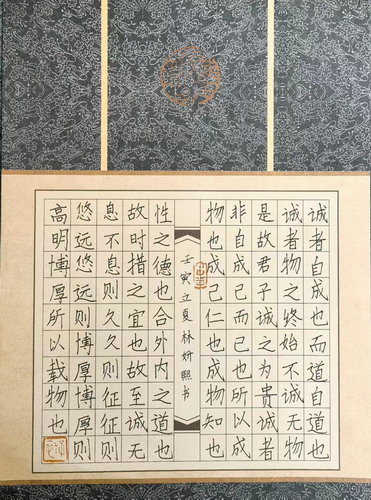 诚者自成也而道自道也
诚者物之终始不诚无物
是故君子诚之为贵诚者
非自成己而已也所以成
物也成己仁也成物知也
壬寅立夏林妍熙书
性之德也合外内之道也
故时措之宜也故至诚无
息不息则久久则征征则
悠远悠远则博厚博厚则
高明博厚所以载物也